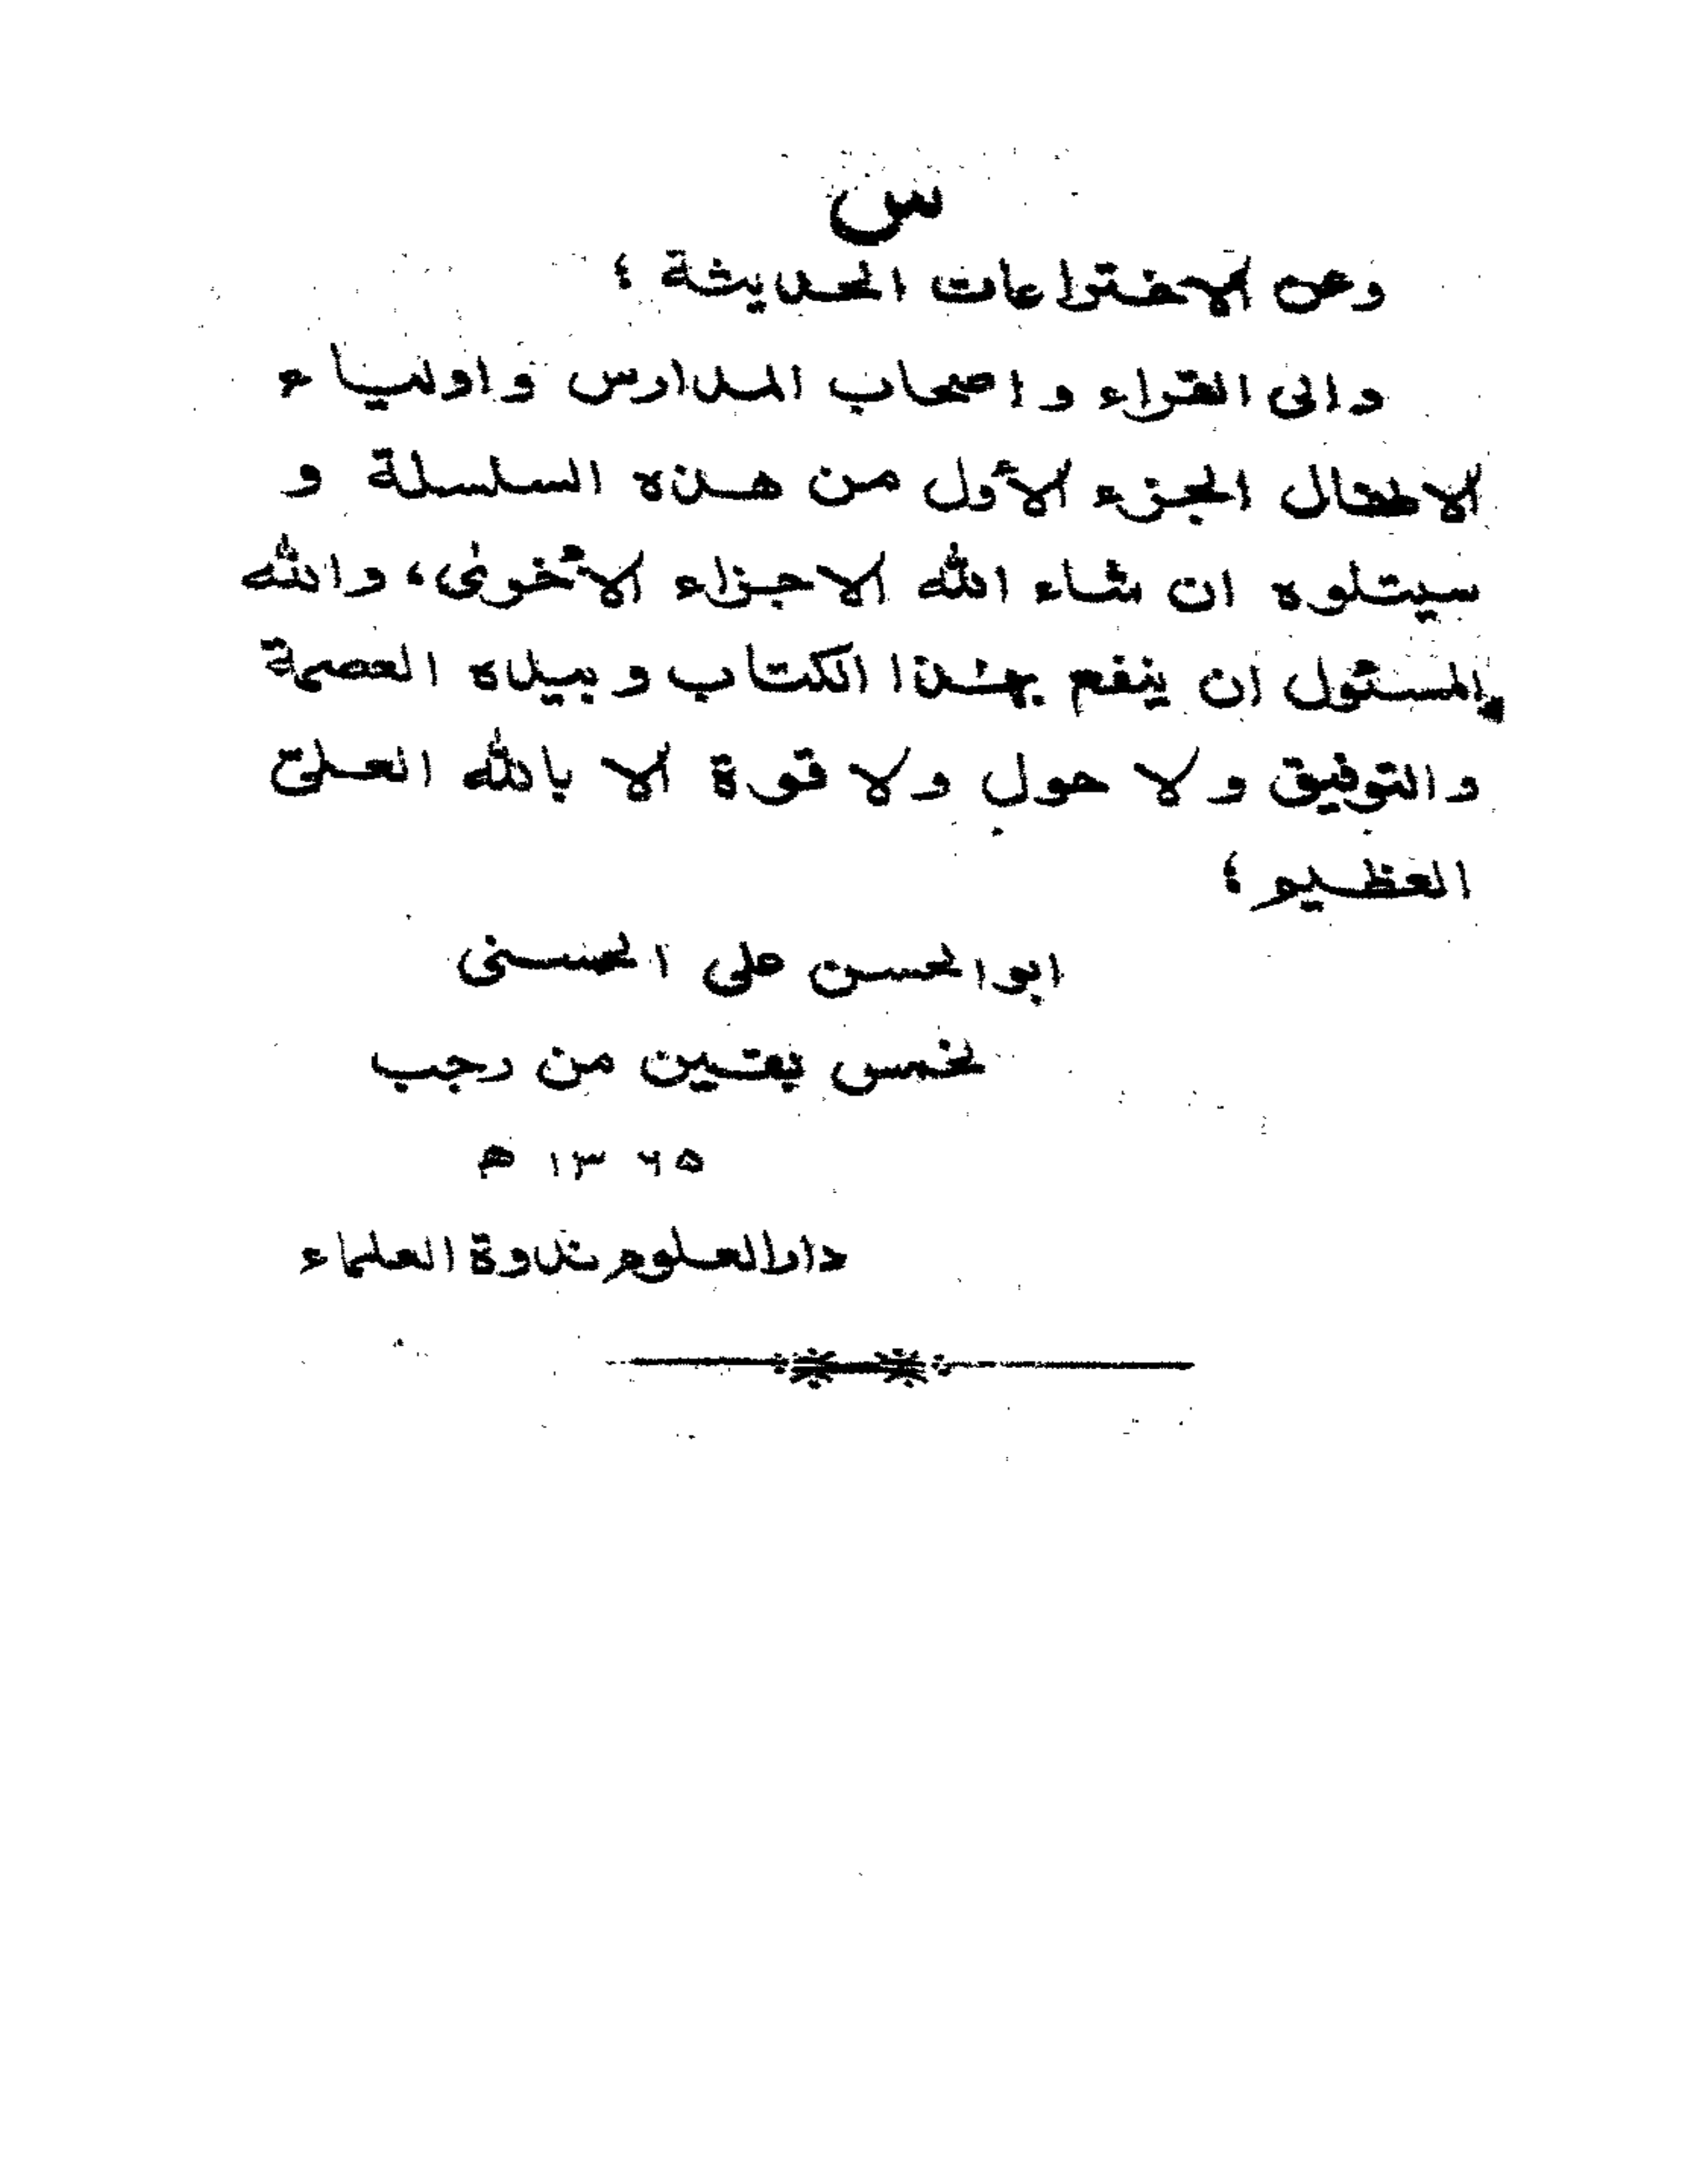 س
وعن الاختراعات الحديثة ؛
والى القراء و اصحاب المدارس و اولياء
الاطفال الجزء الأول من هذه السلسلة و
سيتلوه ان شاء الله الاجزاء الأخرى، والله
المسئول ان ينفع بهذا الكتاب و بيده العصمة
والتوفيق و لا حول ولا قوة الا بالله العلى
العظيم ؛
ابوالحسن على الحسنى
لخمس بقين من رجب
۱۳ ۶۵ ھ
دارالعلوم ندوة العلماء